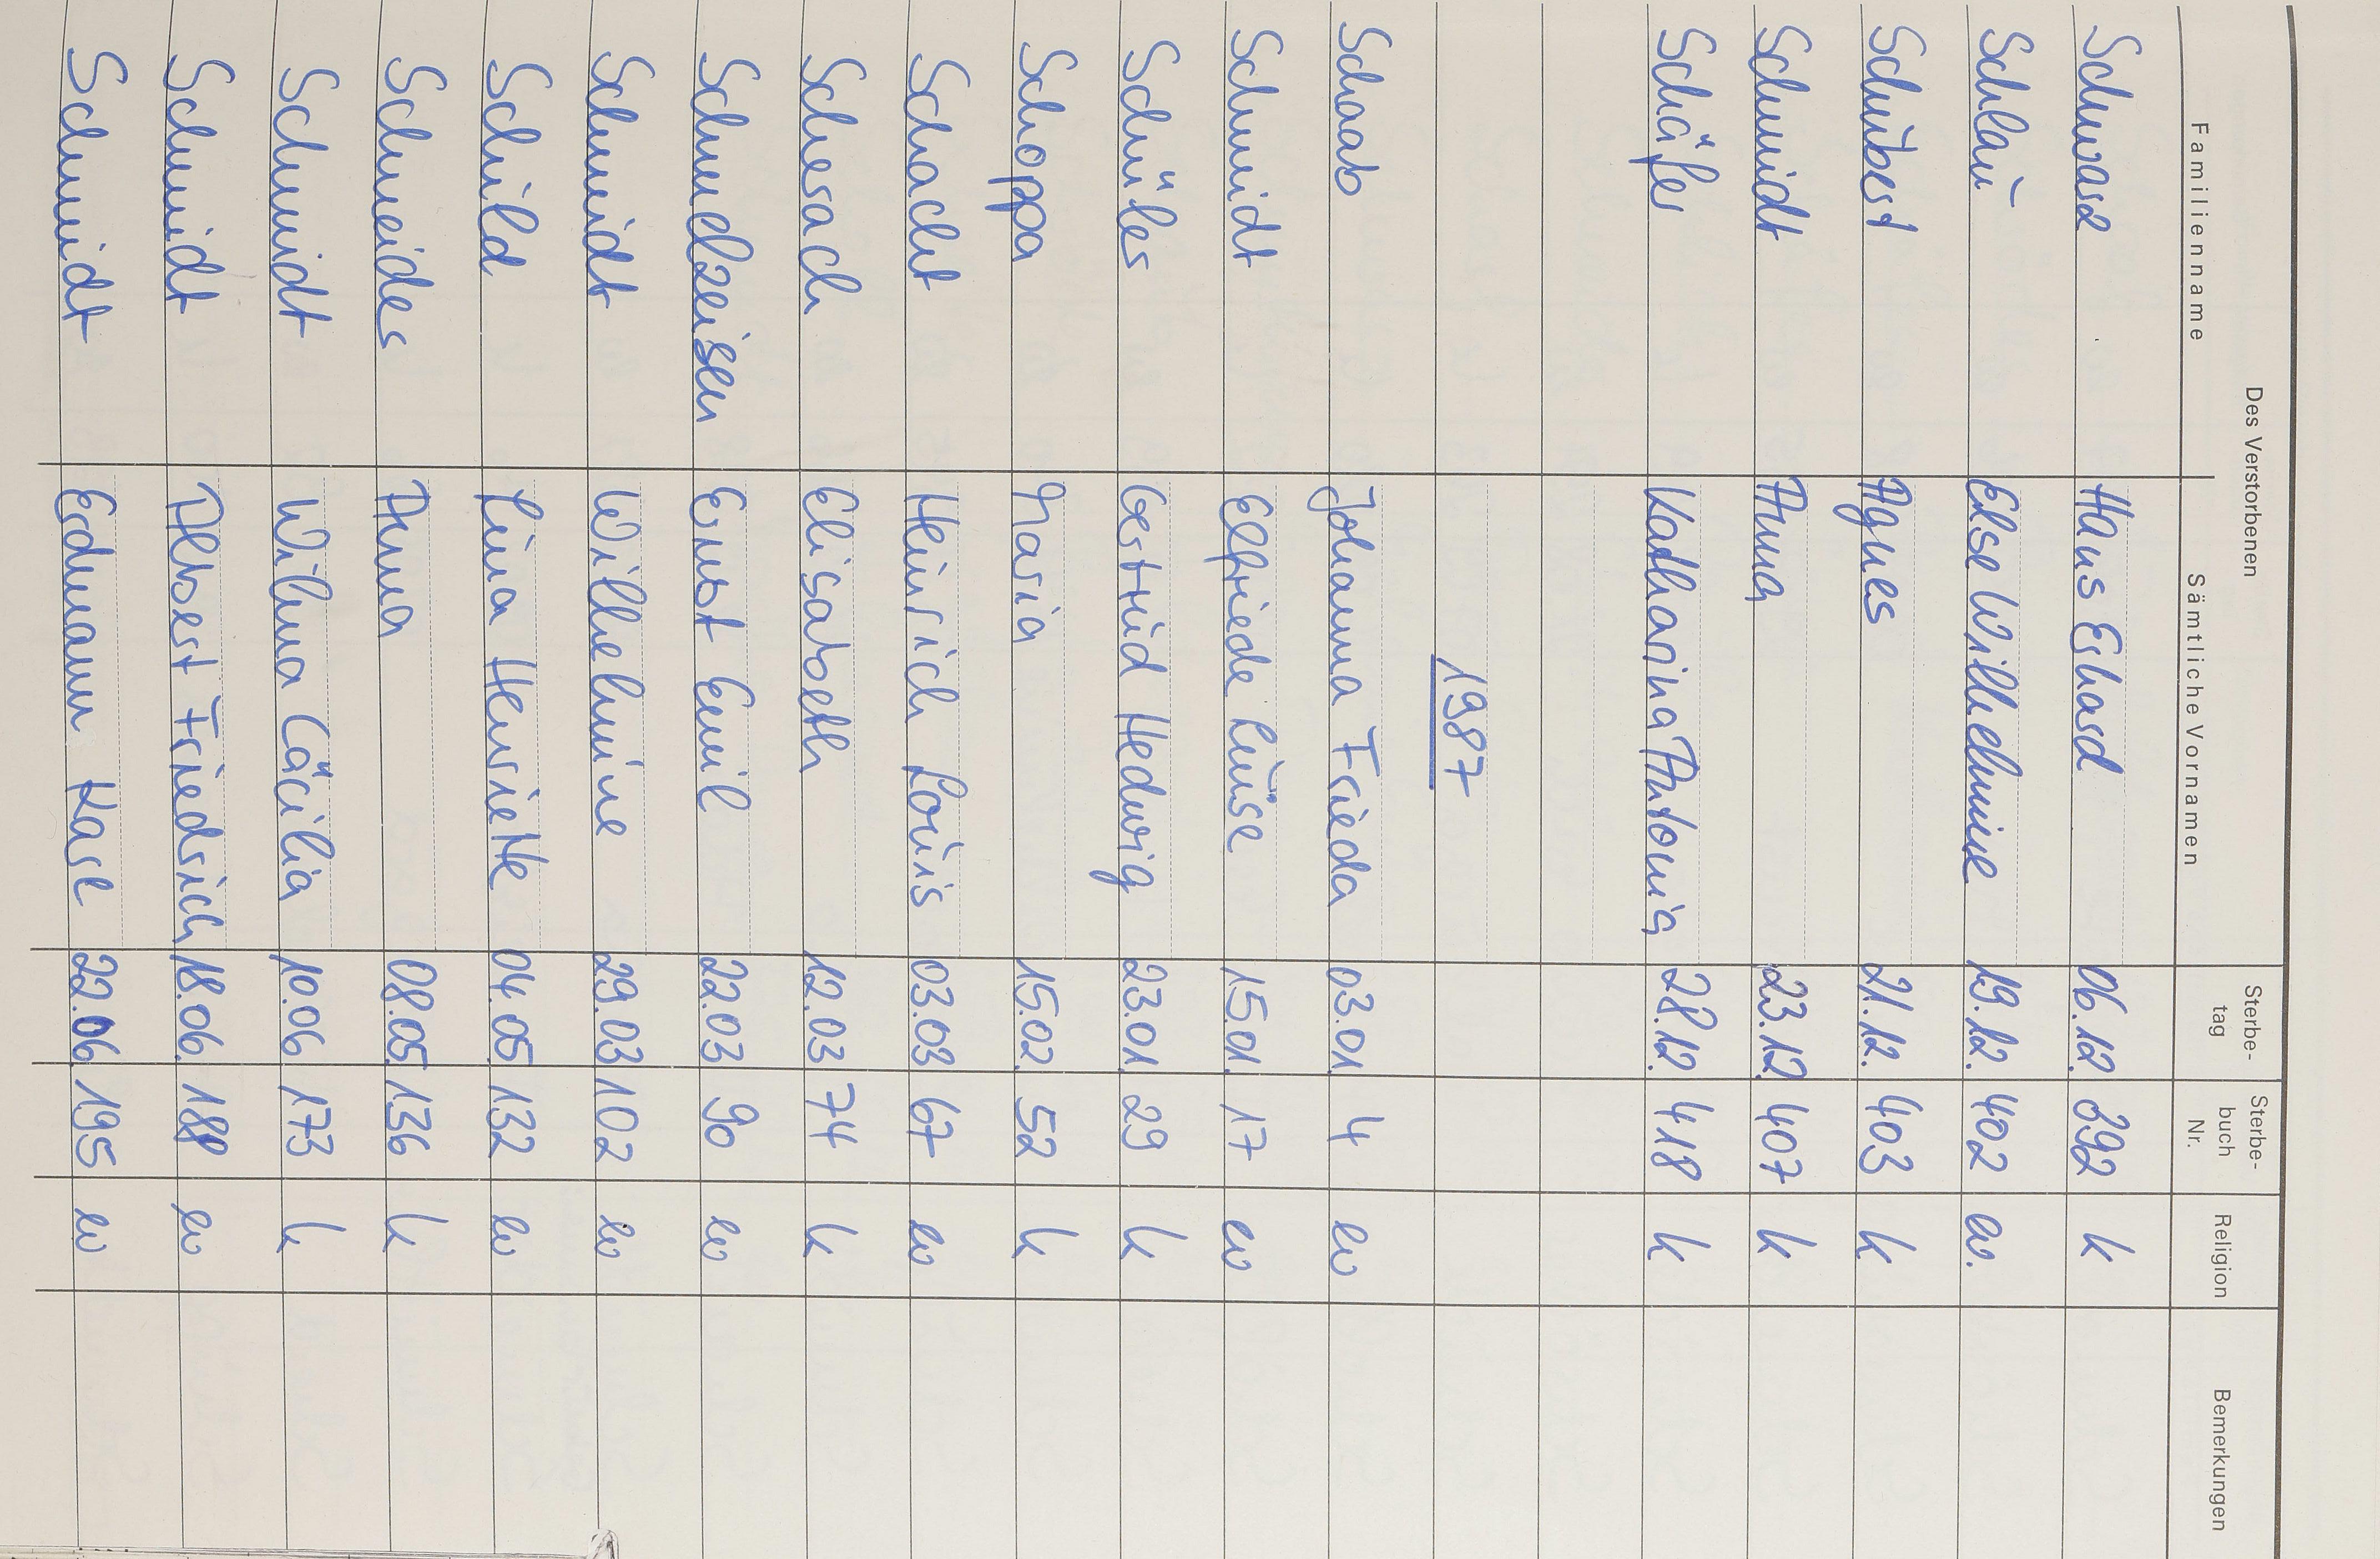 Des Verstorbenen
Familienname Sämtliche Vornamen Sterbe-tag Sterbe-buch Nr. Religion Bemerkungen
Schwarz Hans Erhard 06.12. 392 k
Schlau Else Wilhelmine 19.12. 402 ev.
Schubert Agnes 21.12. 403 k
Schmidt Anna 23.12. 407 k
Schäfer Katharina Antonia 28.12. 418 k
1987
Schaab Johanna Frieda 03.01. 4 ev
Schmidt Elfriede Luise 15.01. 17 ev
Schüler Gertrud Hedwig 23.01. 29 k
Schoppa Maria 15.02. 52 k
Schacht Heinrich Louis 03.03 67 ev
Scherach Elisabeth 12.03 74 k
Schmelzeisen Ernst Emil 22.03 90 ev
Schmidt Wilhelmine 29.03 102 ev
Schild Lina Henriette 04.05 132 ev
Schneider Anna 08.05 136 k
Schmidt Wilma Cäcilia 10.06 173 k
Schmidt Albert Friedrich 18.06. 188 ev
Schmidt Erdmann Karl 22.06. 195 ev